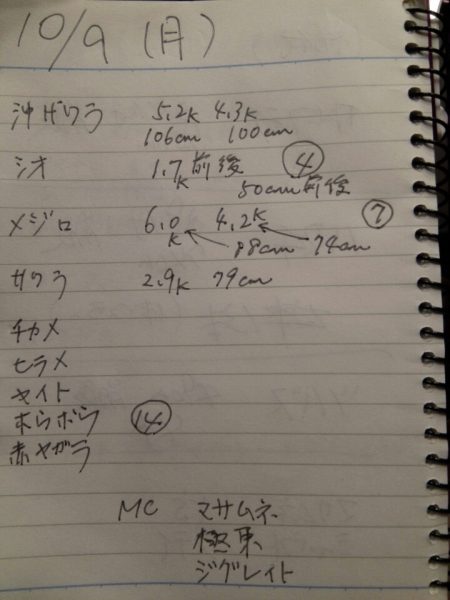 10/9 (月)
沖ザワラ 5.2K 4.3K
106cm 100cm
シオ 1.7K前後 ④
50cm前後
メジロ 6.0K 4.2K ⑦
88cm 74cm
サワラ 2.9K 79cm
チカメ
ヒラメ
ヤイト
ホウボウ ⑭
赤ヤガラ
MC マサムネ
極東
ジグレイト